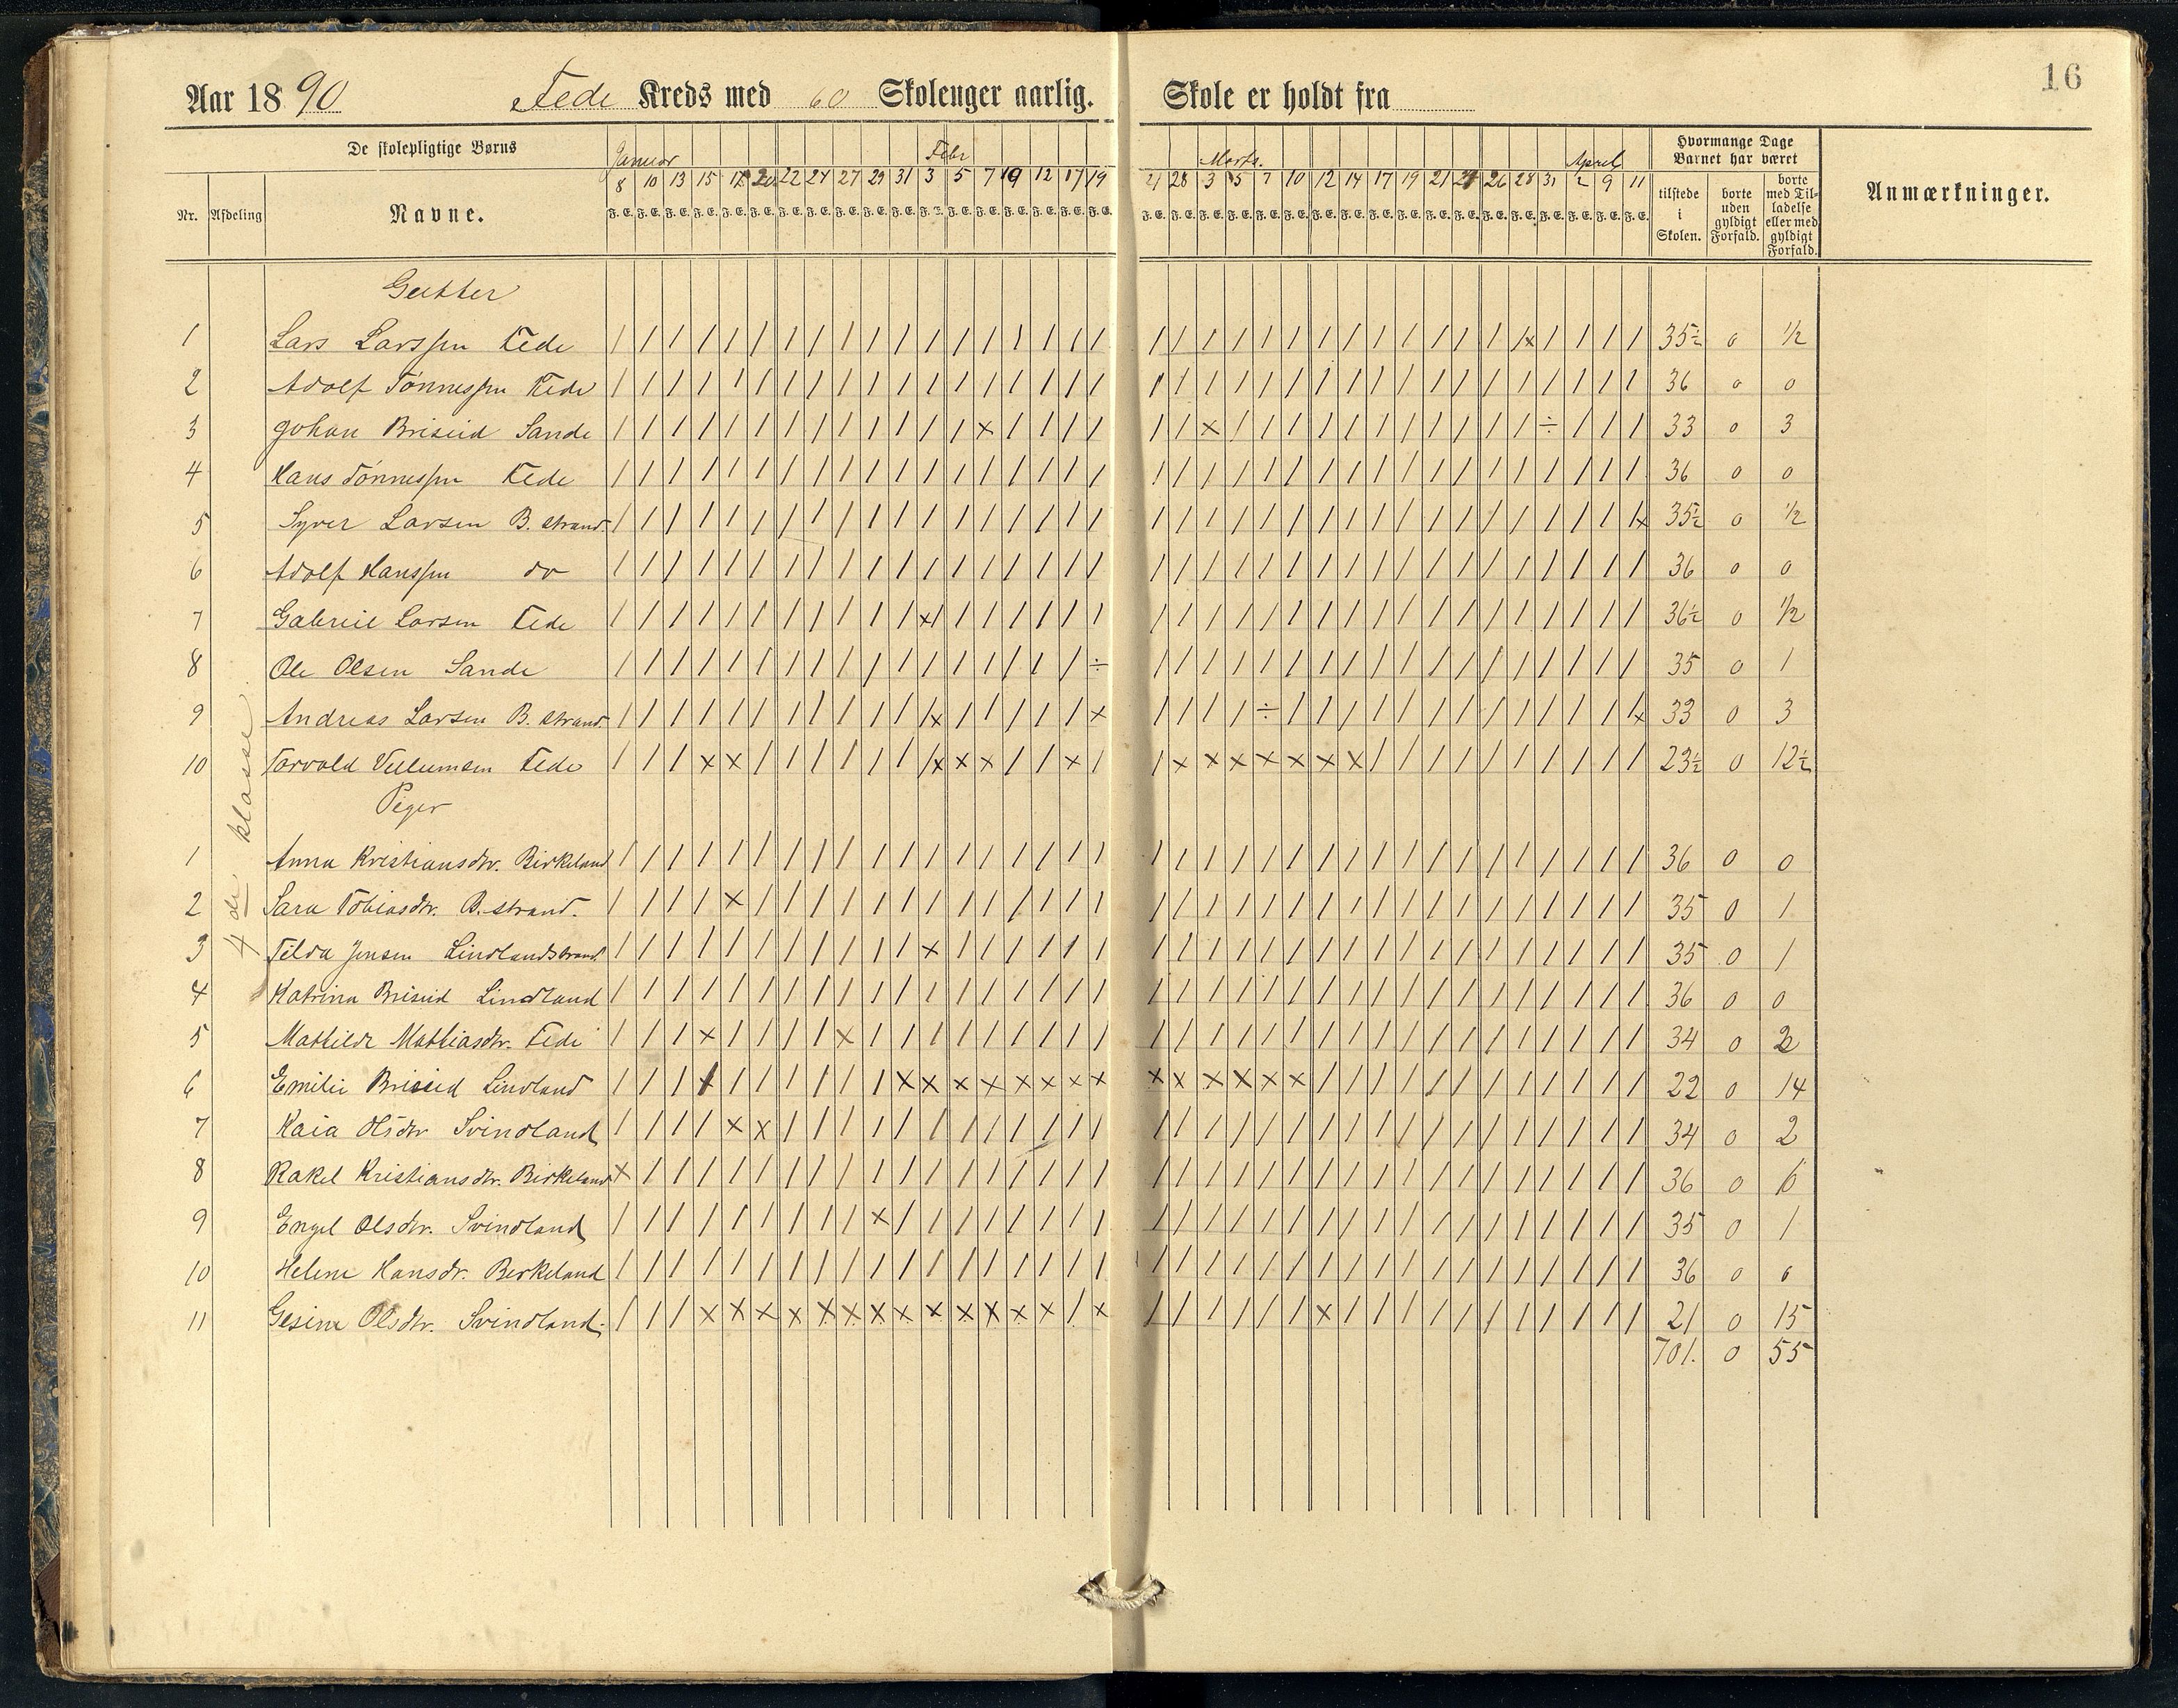 16
Aar 1890 Fede Kreds med 60 Skoleuger aarlig. Skole er holdt fra
De skolepligtige Børns
Januar Febr Marts. April
Hvormange Dage Barnet har været
Nr. Afdeling Navne. 8 10 13 15 17 20 22 24 27 29 31 3 5 7 10 12 17 19 21 28 3 5 7 10 12 14 17 19 21 24 26 28 31 2 9 11 tilstede i Skolen. borte uden gyldigt Forfald. borte med Tilladelse eller med gyldigt Forfald. Anmærkninger.
F. E. F. E. F. E. F. E. F. E. F. E. F. E. F. E. F. E. F. E. F. E. F. E. F. E. F. E. F. E. F. E. F. E. F. E. F. E. F. E. F. E. F. E. F. E. F. E. F. E. F. E. F. E. F. E. F. E. F. E. F. E. F. E. F. E. F. E. F. E. F. E.
Gutter
1 Lars Larssen Fede 35½ 0 ½
2 Adolf Tönnessen Fede 36 0 0
3 Johan Briseid Sande 33 0 3
4 Hans Tönnessen Fede 36 0 0
5 Syver Larsen B. strand. 35½ 0 ½
6 Adolf Hanssen do 36 0 0
7 Gabriel Larsen Fede 36½ 0 ½
8 Ole Olsen Sande 35 0 1
9 Andreas Larsen B. strand. 33 0 3
10 Torvald Fede 23½ 0 12½
4de klasse.
Piger
1 Anna Kristiansdtr. Birkeland 36 0 0
2 Sara Tobiasdtr. B. strand. 35 0 1
3 Tilda Jensen Lindlandstrand 35 0 1
4 Katrina Briseid Lindland 36 0 0
5 Mathilde Mathiasdtr. Fede 34 0 2
6 Emilie Briseid Lindland 22 0 14
7 Kaia Olsdtr Svindland 34 0 2
8 Rakel Kristiansdtr. Birkeland 36 0 0
9 Engel Olsdtr. Svindland 35 0 1
10 Helene Hansdr. Berkeland 36 0 0
11 Gesine Olsdtr. Svindland. 21 0 15
701. 0 55